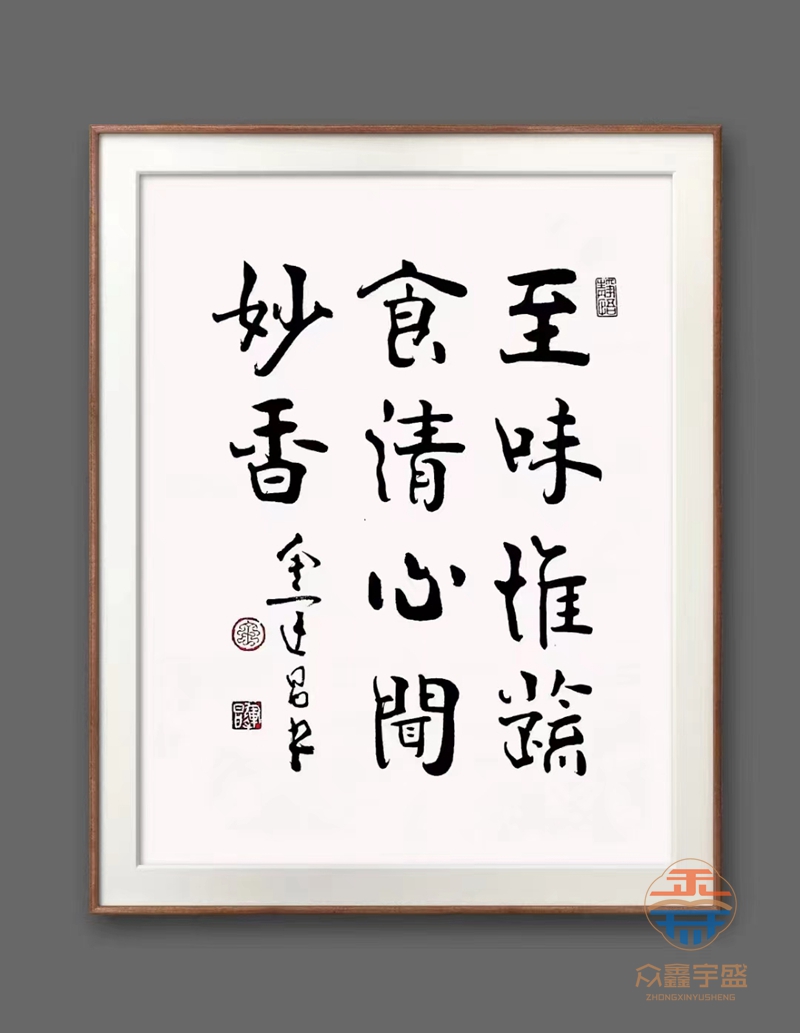 至味惟蔬
食清心聞
妙香
金運昌书
众鑫宇盛
ZHONGXINYUSHENG